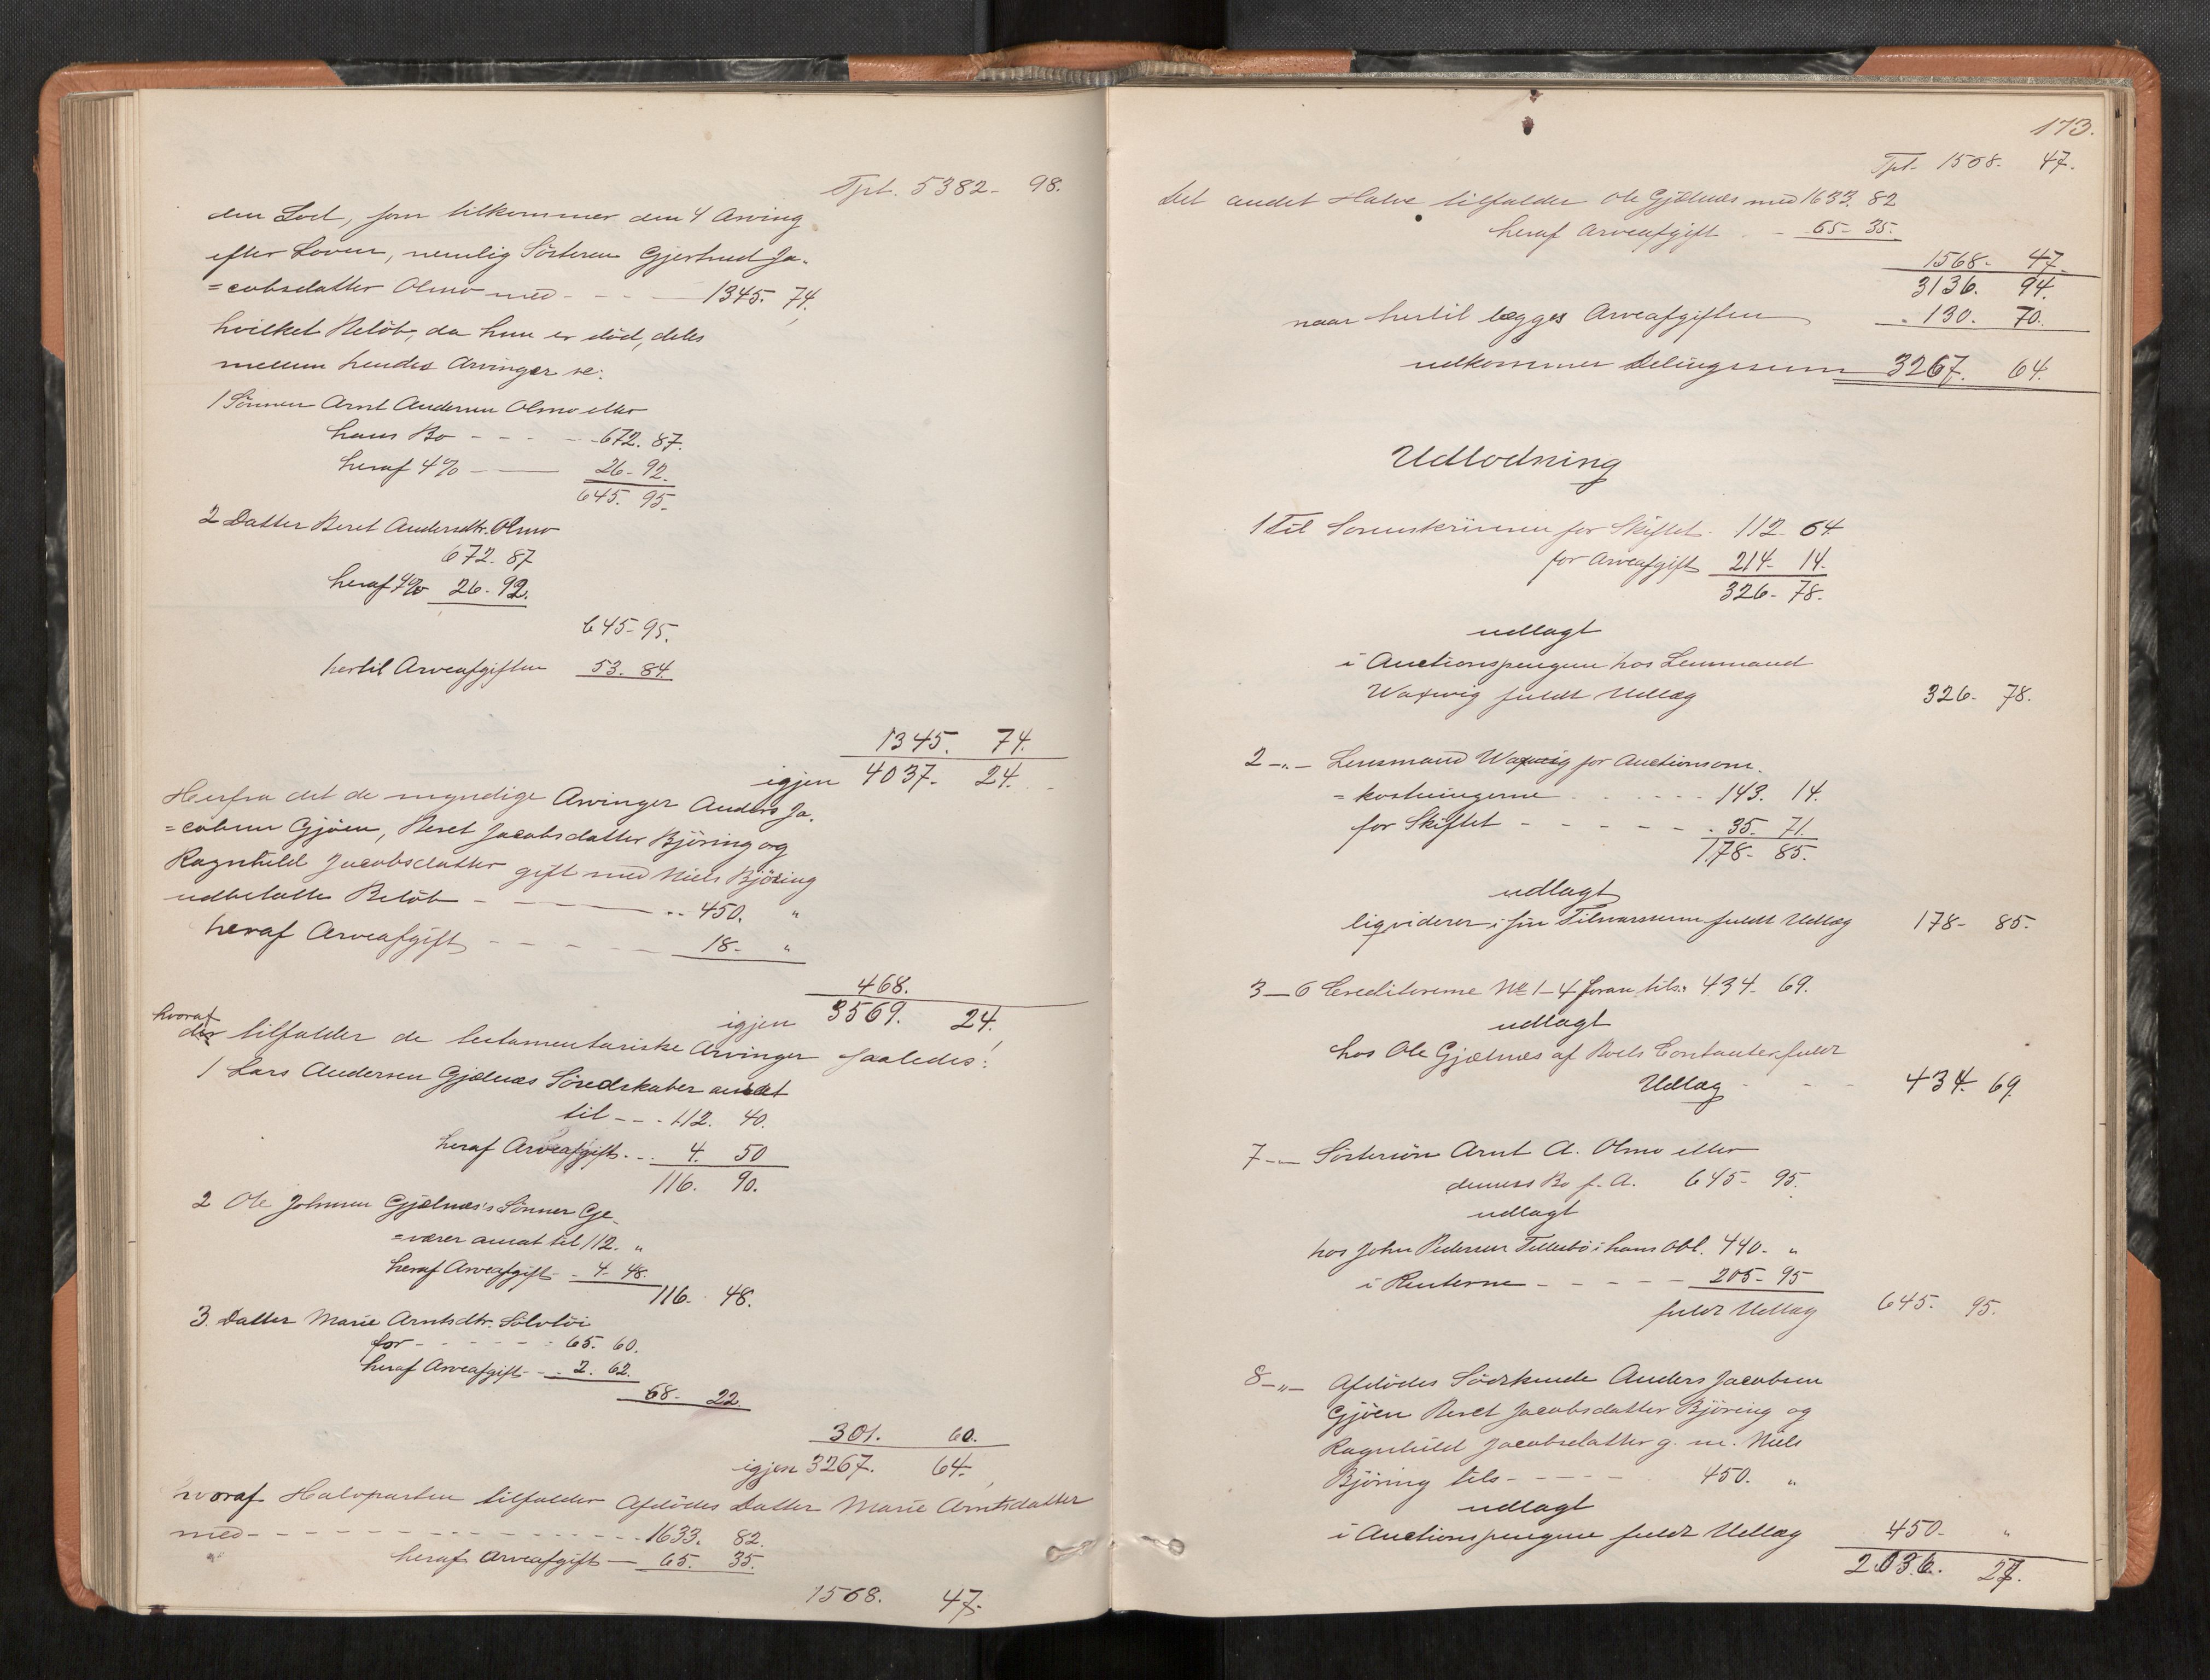 Tpt. 5382- 98.
den Lod, som tilkommer den 4 Arving
efter Loven, nemlig Søsteren Gjertrud Ja-
=cobsdatter Olmo med - - - 1345. 74.
hvilket Beløb, da hun er død, deles
mellem hendes Arvinger se:
1 Sønnen Arnt Andersen Olmo eller
hans Bo - - - - 672. 87.
heraf 4% - 26- 92.
645. 95.
2 Datter Beret Andersdtr. Olmo
672. 87
heraf 4% 26- 92.
645- 95.
hertil Arveafgiften 53. 84.
1345. 74.
igjen 4037- 24.
Herfra det de myndige Arvinger Anders Ja-
=cobsen Gjøen, Beret Jacobsdatter Björing og
Ragnhild Jacobsdatter gift med Niels Björing
udbetalte Beløb - - - - 450. "
heraf Arveafgift - - - - 18- "
468.
igjen 3569. 24.
hvoraf
der tilfalder de testamentariske Arvinger saaledes:
1 Lars Andersen Gjølnæs Snedskaber
til - - - 112. 40.
heraf Arveafgift. - - 4. 50
116. 90.
2 Ole Johnsen Gjølnæs's Sønner Ge-
=værer ansat til 112. "
heraf Arveafgift - - 4- 48.
116- 48.
3. Datter Marie Arntsdtr. Sølvtöi
for - - - - - 65. 60.
heraf Arveafgift - - 2. 62.
68- 22.
301. 60.
igjen 3267. 64.
hvoraf Halvparten tilfalder Afdødes Datter Marie Arntsdatter
med - - - - - - - - - - 1633. 82.
heraf Arveafgift - 65. 35.
1568. 47.
173.
Tpt- 1568- 47.
Det andet Halve tilfalder Ole Gjølnæs med 1633. 82
heraf Arveafgift - - 65- 35.
1568- 47.
3136. 94.
naar hertil lægges Arveafgiften 130. 70.
udkommer Delingssum 3267. 64.
Udlodning
1 Til Sorenskriveren for Skiftet - 112- 64
for Arveafgift 214- 14.
326- 78.
udlagt
i Auctionspengene hos Lensmand
Waxwig fuldt Udlæg 326- 78.
2 -"- Lensmand Waxwig for Auctionsom-
=kostningerne - - - - - 143. 14.
for Skiftet - - - - - 35. 71.
178- 85.
udlagt
liqviderer i sin Tilsvarssum fuldt Udlæg 178- 85.
3 - 6 Creditorerne No 1-4 foran tils. 434- 69.
udlagt
hos Ole Gjølnæs af Boets Contanter fuldt
Udlæg - - - 434. 69.
7 -"- Søstersøn Arnt A. Olmo eller
dennes Bo f. A. 645- 95.
udlagt
hos John Pedersen Tellesbö i hans Obl. 440- "
i Renterne - - - - - 205- 95
fuldt Udlæg 645. 95.
8 -"- Afdødes Södskende Anders Jacobsen
Gjøen Beret Jacobsdatter Björing og
Ragnhild Jacobsdatter g. m. Niels
Björing tils - - - - - 450. "
udlagt
i Auctionspengene fuldt Udlæg 450- "
2036. 27.